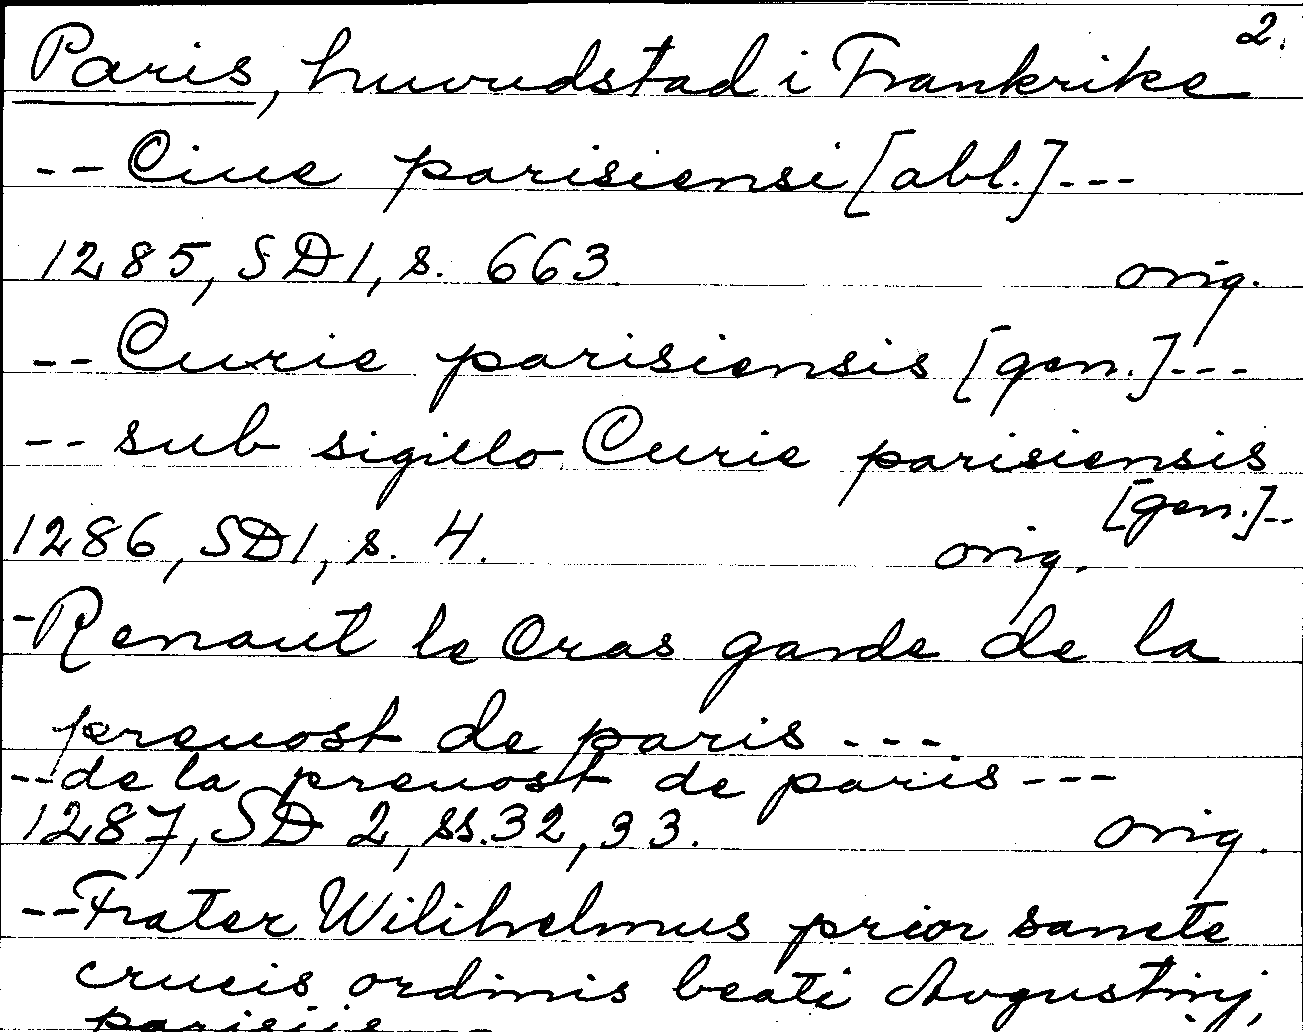 2.
Paris, huvudstad i Frankrike
-- Ciue parisiensi [abl.] ---
1285, SD 1, s. 663. orig.
-- Curie parisiensis [gen.] ---
-- sub sigillo Curie parisiensis
[gen.]--
1286, SD 1, s. 4. orig.
- Renaut le Cras garde de la
preuost de paris ---
-- de la preuost de paris ---
1287, SD 2, ss. 32, 33. orig.
-- Frater Wilihelmus prior sancte
crucis ordinis beati Augustinj,
parisijs ---